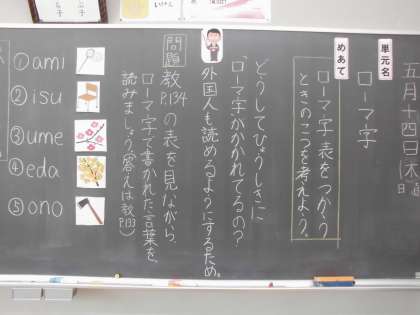 五月十四日(木)
単元名
ローマ字
めあて
ローマ字表をつかう
ときのこつを考えよう。
どうしてひょうしきに
「ローマ字」がかかれてるの?
外国人も読めるようにするため。
問題
教P.134の表を見ながら、
ローマ字で書かれた言葉を
読みましょう(答えは教P.133)
①ami
②isu
③ume
④eda
⑤ono